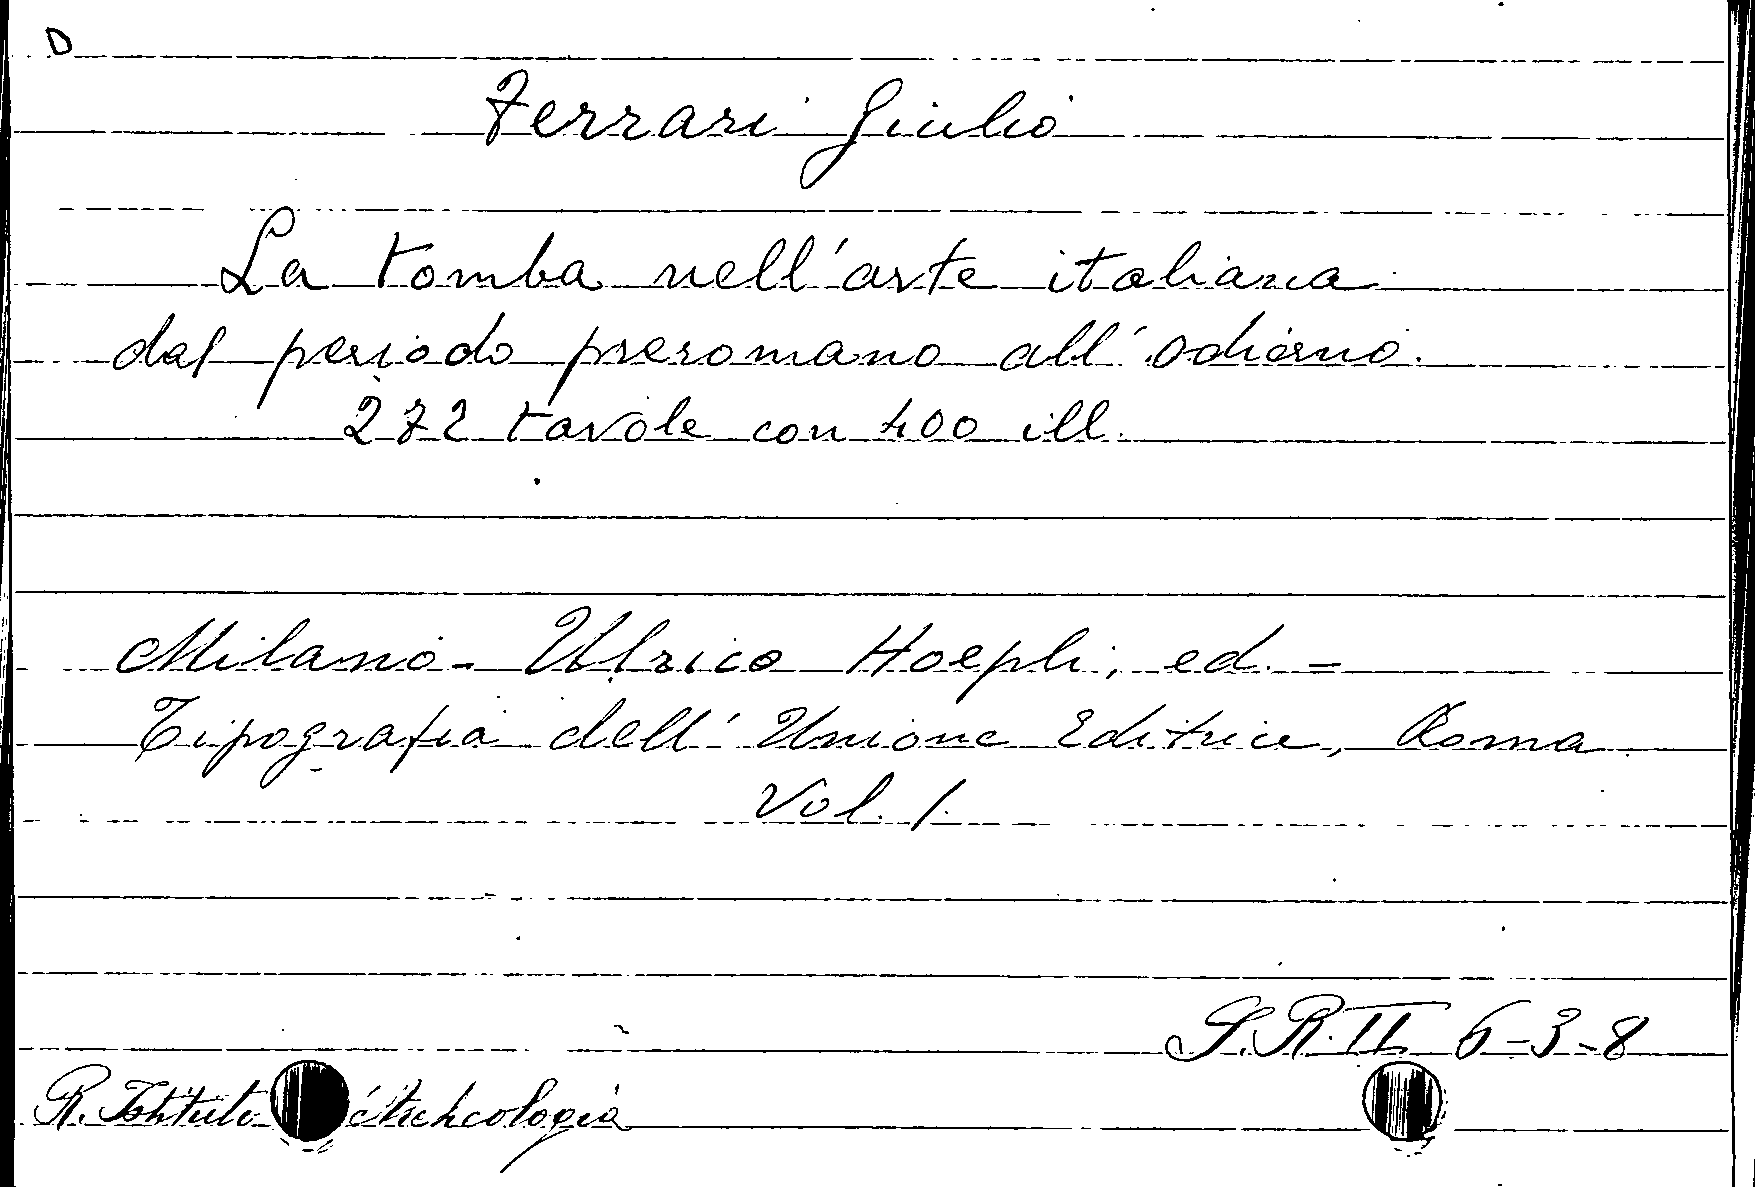 D
Ferrari Giulio
La tomba nell'arte italiana
dal periodo preromano all'odierno.
272 tavole con 400 ill.
Milano - Ulrico Hoepli, ed. -
Tipografia dell'Unione Editrice, Roma
Vol. 1.
S.R. II 6-3-8
R. Istituto Archeologia